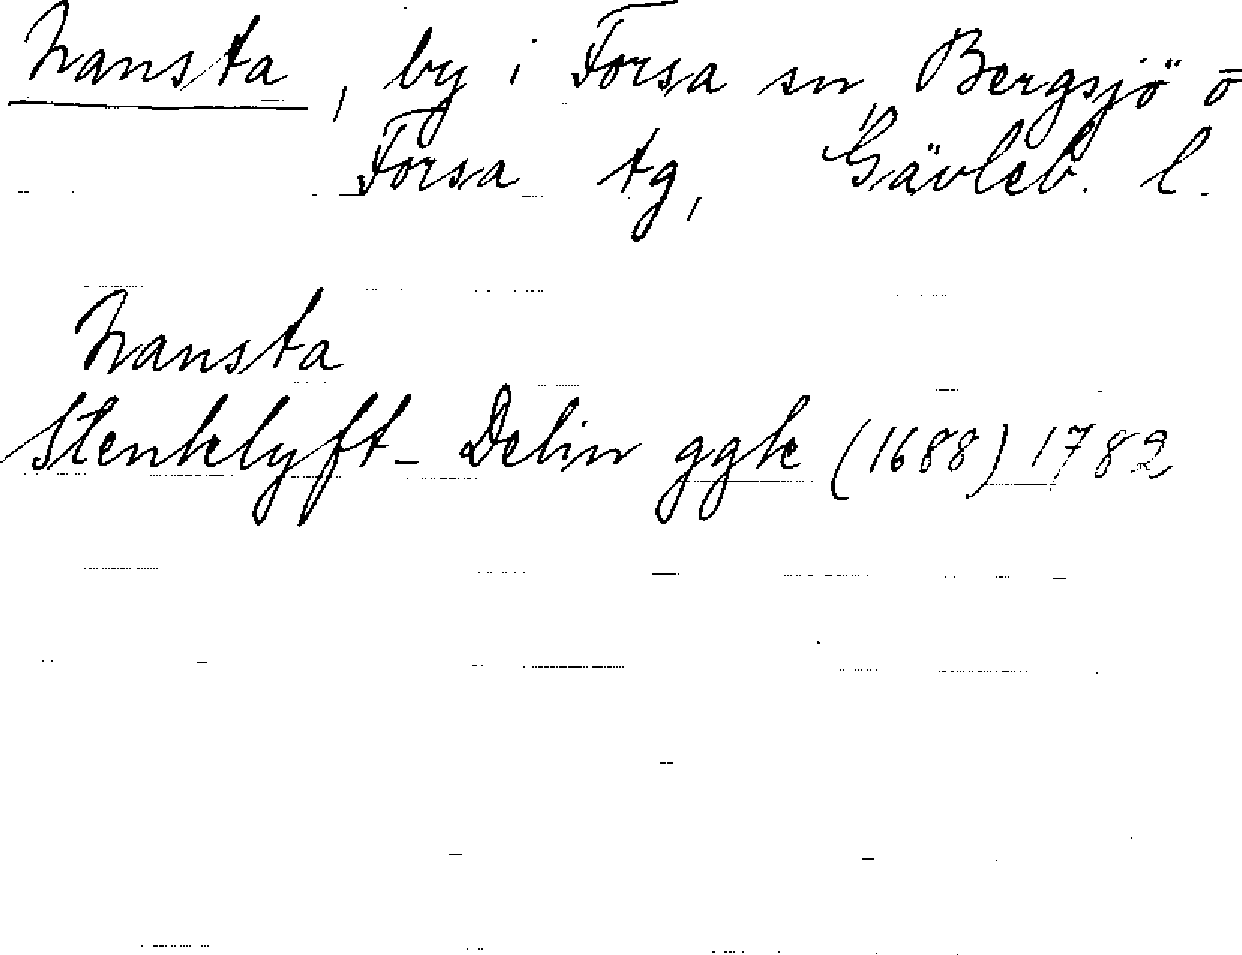 Nansta, by i Forsa sn, Bergsjö o
Forsa tg, Gävleb. l.
Nansta
Stenklyft- Delin ggk (1688) 1782